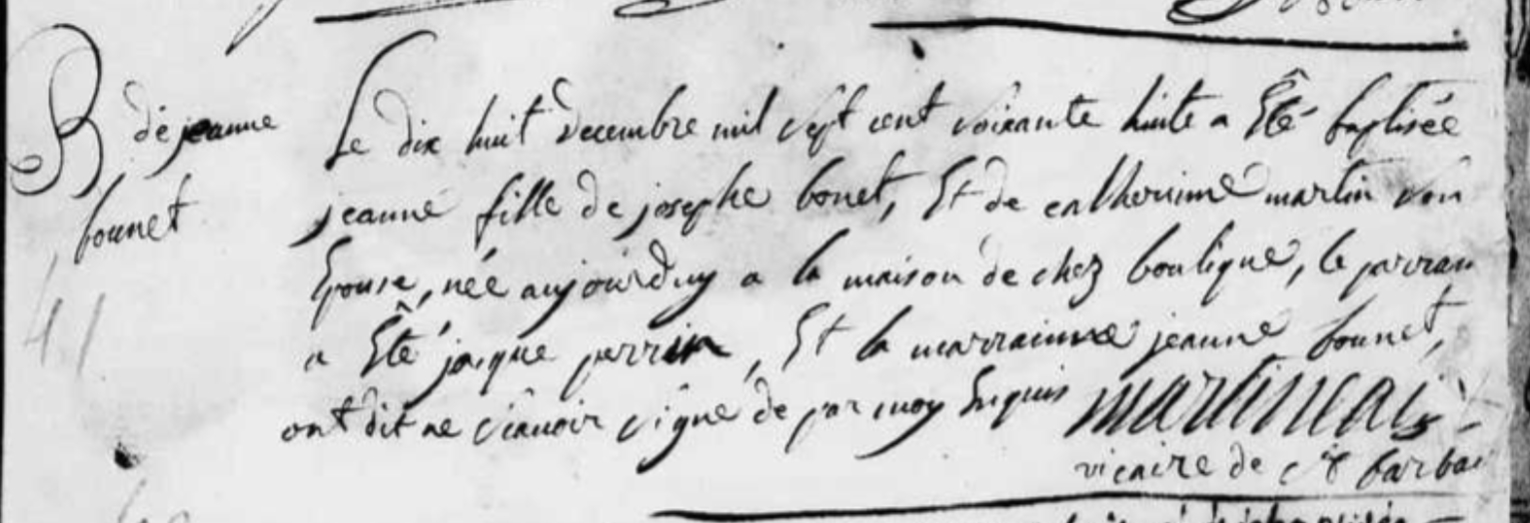 B de jeanne
bonnet
41
Le dix huit decembre mil sept cent soixante huite a Eté baptisée
jeanne fille de josephe bonet, Et de catherinne martin son
Epouse, née aujourduy a la maison de chez boutique, le parrain
a Eté jacque perrin, Et la marrainne jeanne bonnet,
ont dit ne sçavoir signe de par moy Enquis martineau
vicaire de st barbai